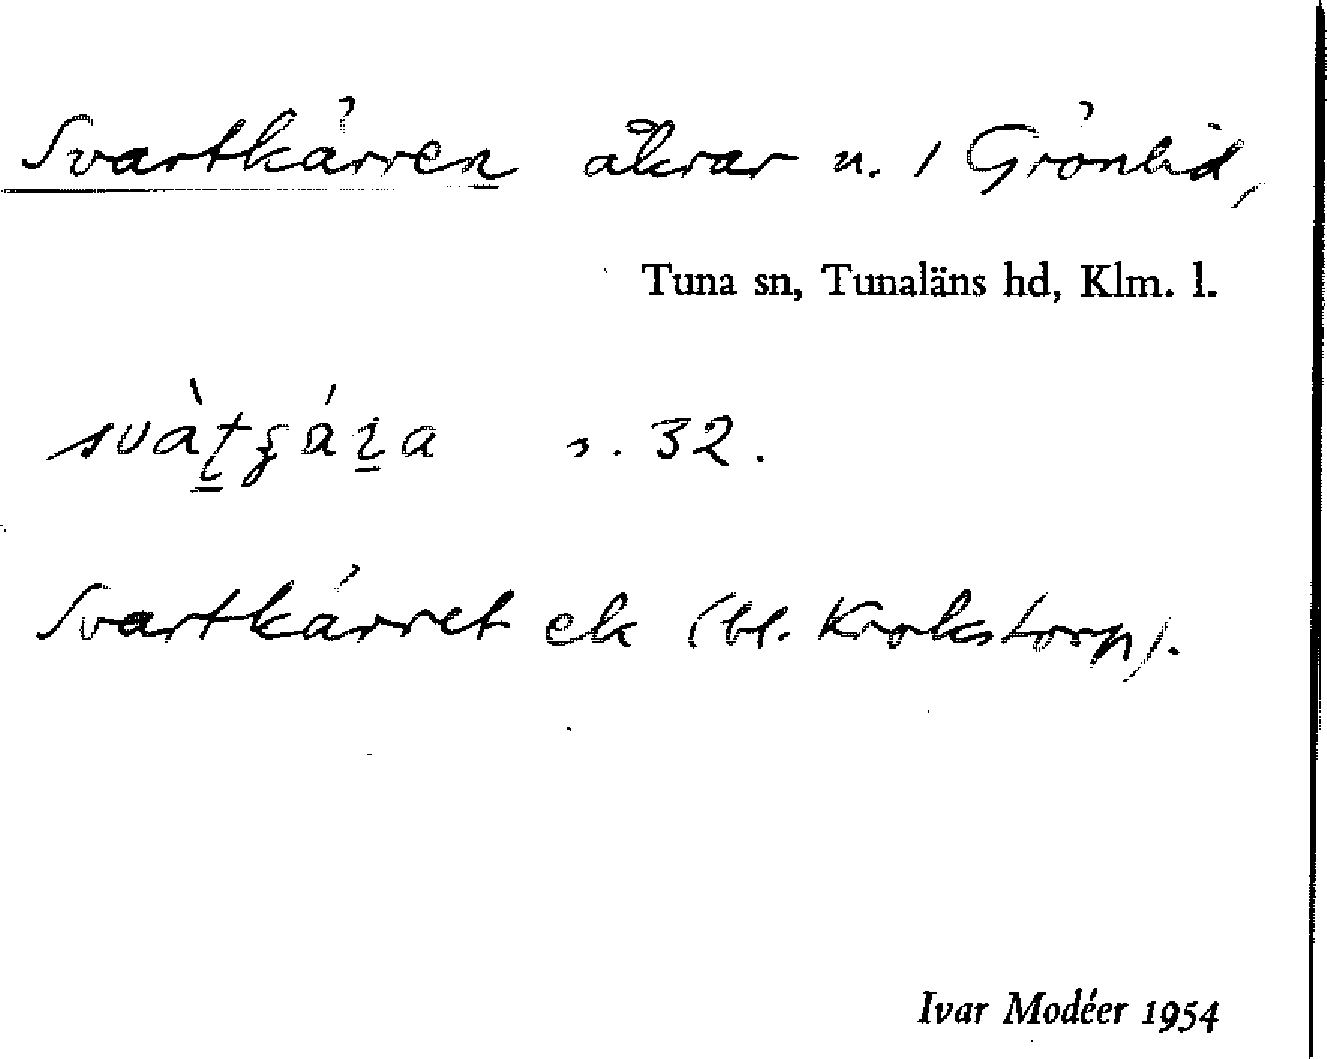 Svartkärren åkrar u. 1 Grönlid,
Tuna sn, Tunaläns hd, Klm. l.
s. 32.
Svartkärret ek (bl. Krokstorp).
Ivar Modéer 1954